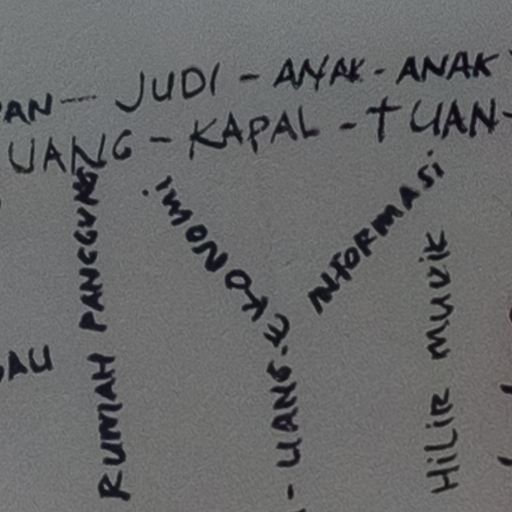 AN - JUDI - ANAK - ANAK
UANG - KAPAL - TUAN -
RUMAH PANGGUNG
EKONOMI
INFORMASI
- UANG -
HILIR MUDIK
AU